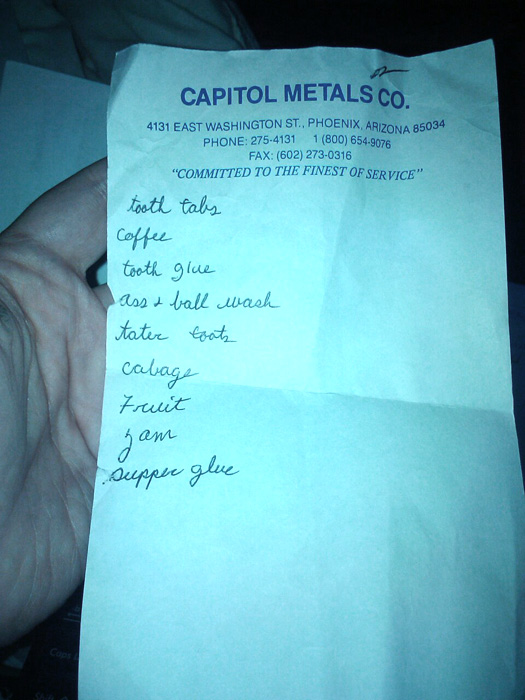 CAPITOL METALS CO.
4131 EAST WASHINGTON ST., PHOENIX, ARIZONA 85034
PHONE: 275-4131 1 (800) 654-9076
FAX: (602) 273-0316
"COMMITTED TO THE FINEST OF SERVICE"
tooth tabs
coffee
tooth glue
ass & ball wash
tater toots
cabage
Fruit
jam
supper glue